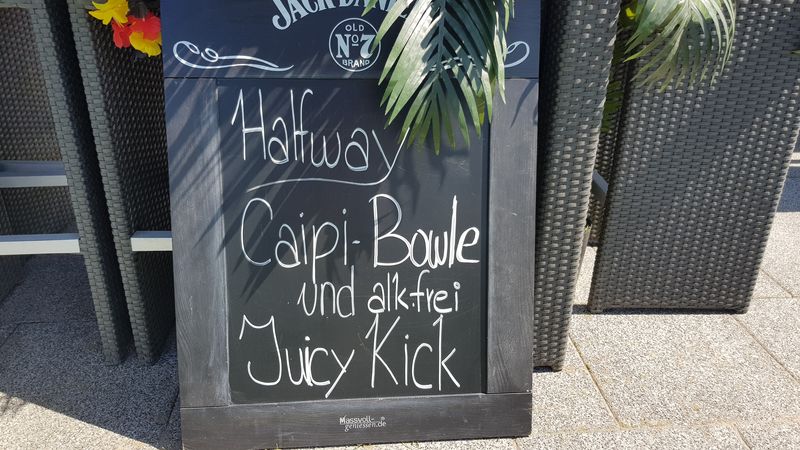 JACK DANIE
OLD
No. 7
BRAND
Halfway
Caipi-Bowle
und alk.frei
Juicy Kick
Massvoll-
geniessen.de